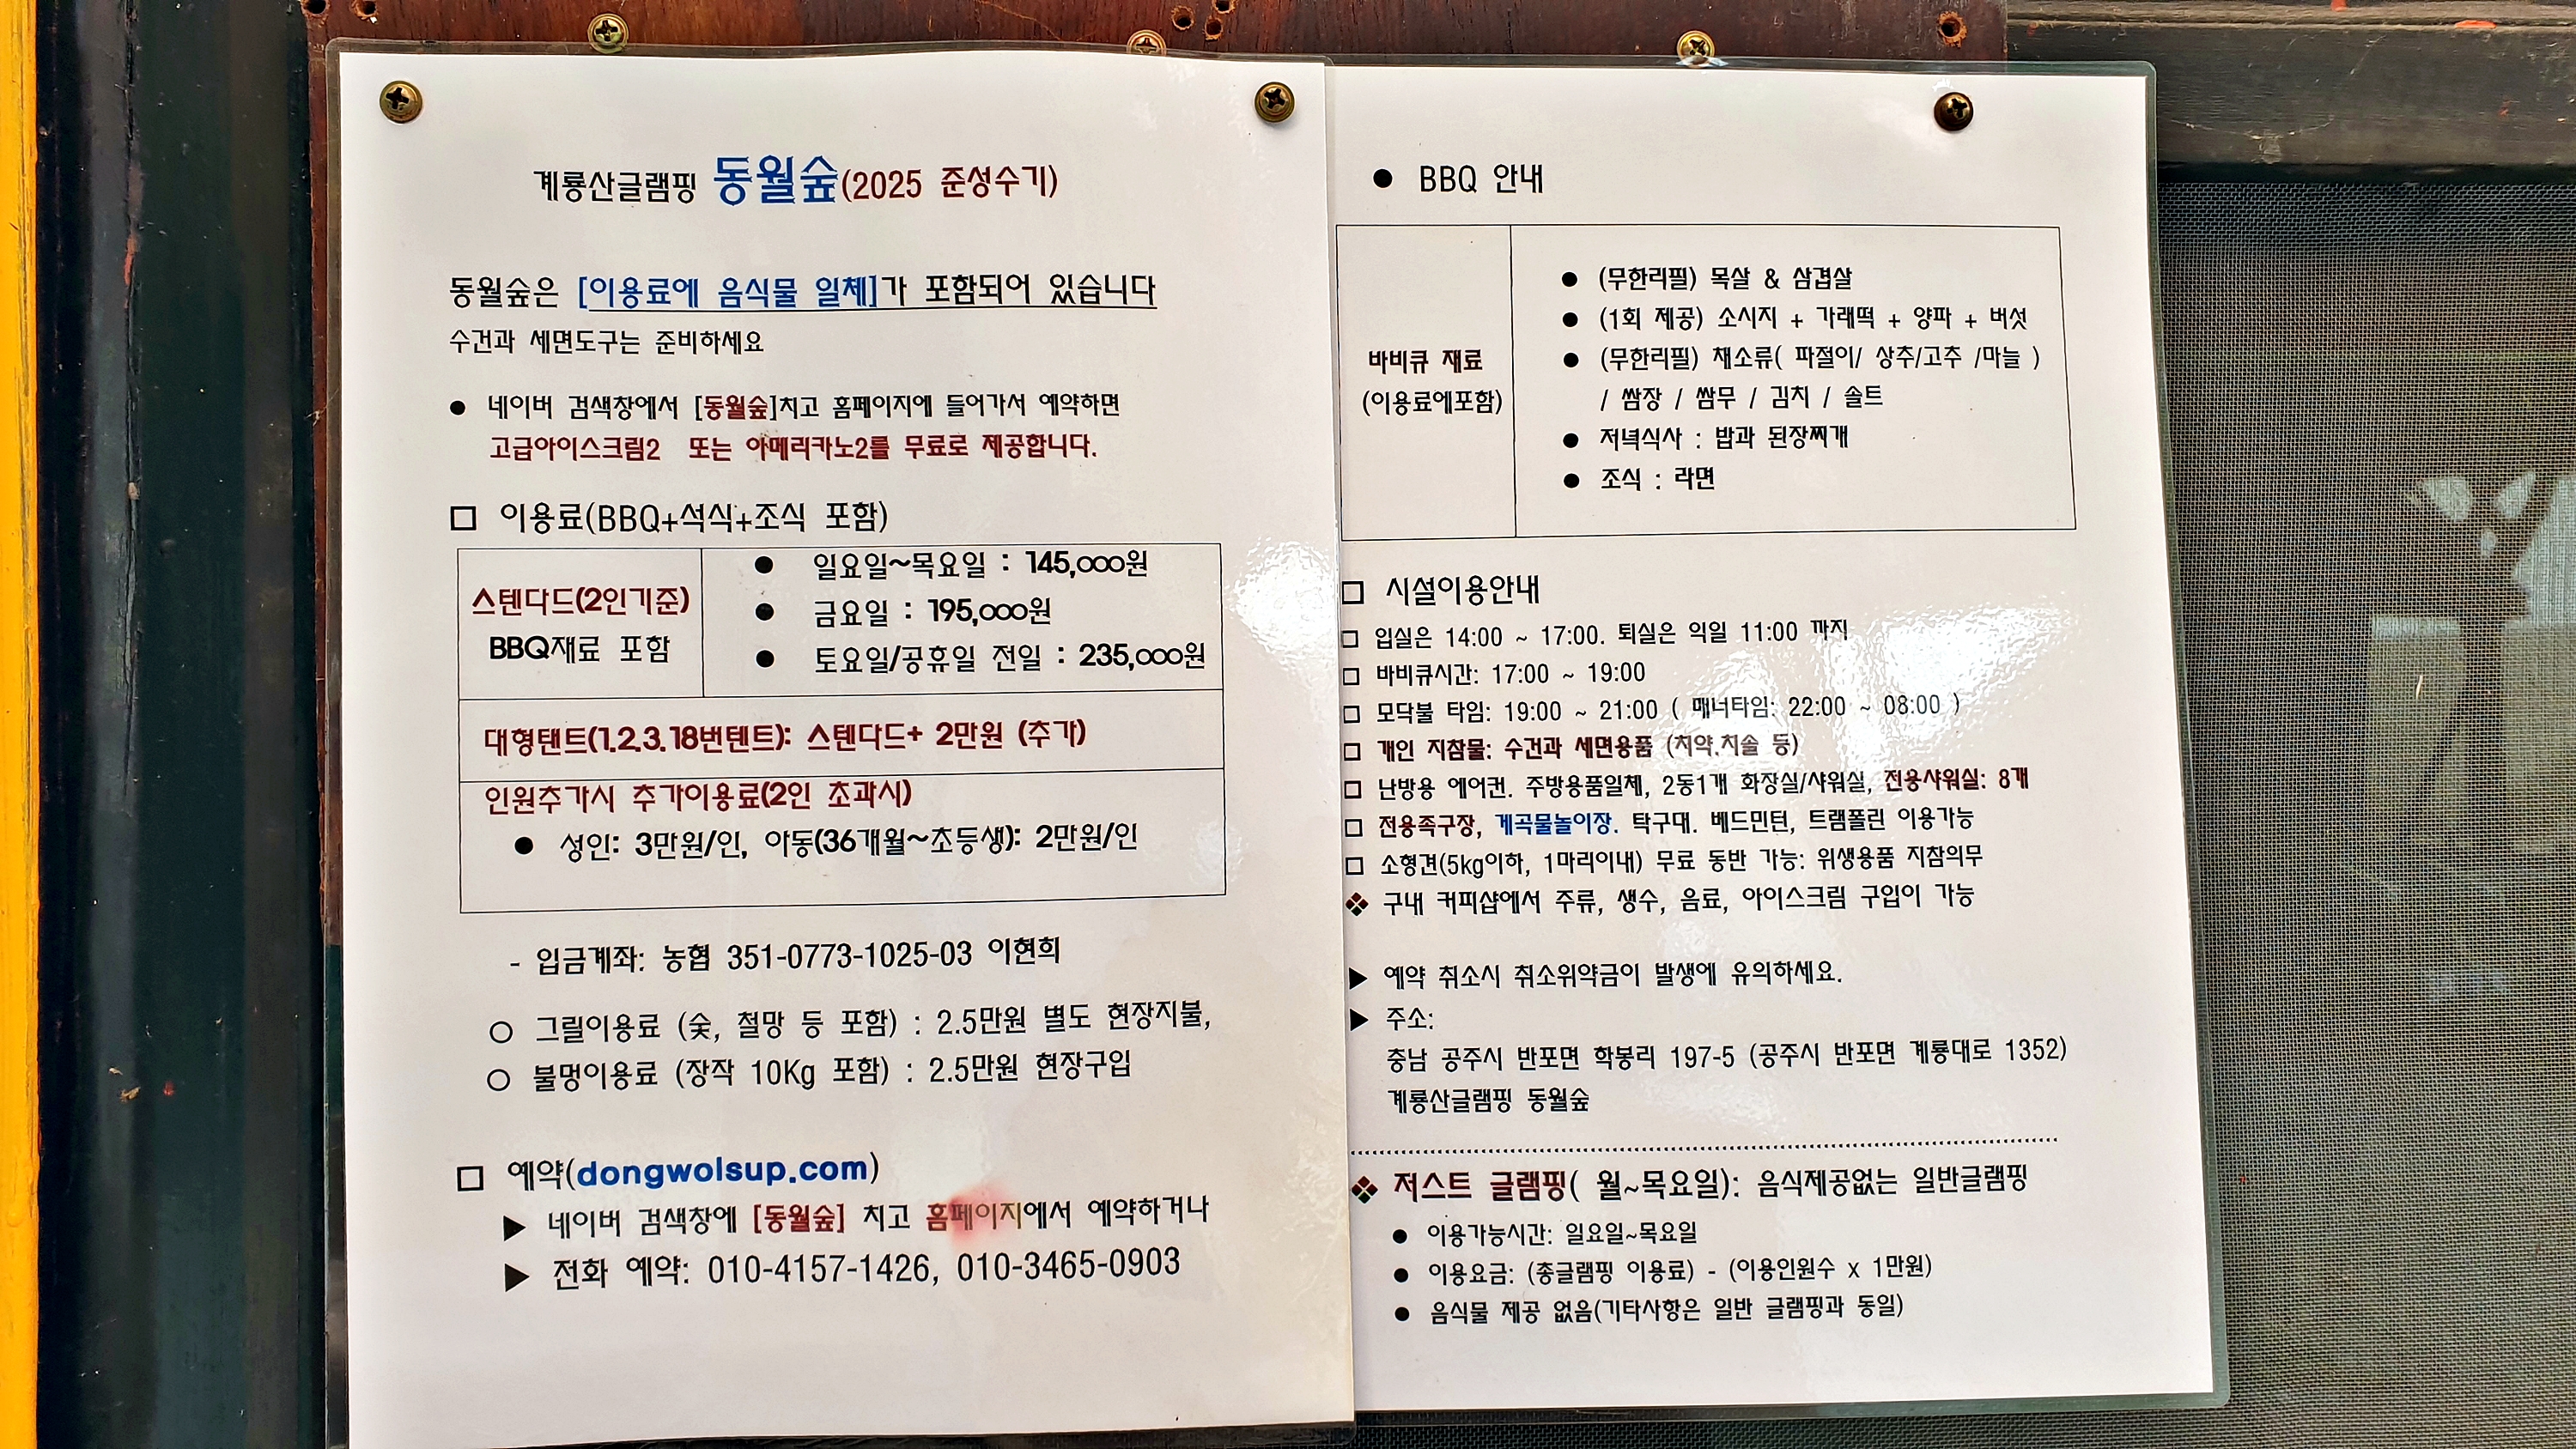 계룡산글램핑 동월숲(2025 준성수기)
동월숲은 [이용료에 음식물 일체]가 포함되어 있습니다
수건과 세면도구는 준비하세요
● 네이버 검색창에서 [동월숲]치고 홈페이지에 들어가서 예약하면
고급아이스크림2 또는 아메리카노2를 무료로 제공합니다.
□ 이용료(BBQ+석식+조식 포함)
스텐다드(2인기준)
BBQ재료 포함
● 일요일~목요일 : 145,000원
● 금요일 : 195,000원
● 토요일/공휴일 전일 : 235,000원
대형탠트(1.2.3.18번텐트): 스텐다드+ 2만원 (추가)
인원추가시 추가이용료(2인 초과시)
● 성인: 3만원/인, 아동(36개월~초등생): 2만원/인
- 입금계좌: 농협 351-0773-1025-03 이현희
○ 그릴이용료 (숯, 철망 등 포함) : 2.5만원 별도 현장지불,
○ 불멍이용료 (장작 10Kg 포함) : 2.5만원 현장구입
□ 예약(dongwolsup.com)
▶ 네이버 검색창에 [동월숲] 치고 홈페이지에서 예약하거나
▶ 전화 예약: 010-4157-1426, 010-3465-0903
● BBQ 안내
바비큐 재료
(이용료에포함)
● (무한리필) 목살 & 삼겹살
● (1회 제공) 소시지 + 가래떡 + 양파 + 버섯
● (무한리필) 채소류( 파절이/ 상추/고추 /마늘 )
/ 쌈장 / 쌈무 / 김치 / 솔트
● 저녁식사 : 밥과 된장찌개
● 조식 : 라면
□ 시설이용안내
□ 입실은 14:00 ~ 17:00. 퇴실은 익일 11:00 까지
□ 바비큐시간: 17:00 ~ 19:00
□ 모닥불 타임: 19:00 ~ 21:00 ( 매너타임: 22:00 ~ 08:00 )
□ 개인 지참물: 수건과 세면용품 (치약.치솔 등)
□ 난방용 에어컨. 주방용품일체, 2동1개 화장실/샤워실, 전용샤워실: 8개
□ 전용족구장, 계곡물놀이장. 탁구대. 베드민턴, 트램폴린 이용가능
□ 소형견(5kg이하, 1마리이내) 무료 동반 가능: 위생용품 지참의무
❖ 구내 커피샵에서 주류, 생수, 음료, 아이스크림 구입이 가능
▶ 예약 취소시 취소위약금이 발생에 유의하세요.
▶ 주소:
충남 공주시 반포면 학봉리 197-5 (공주시 반포면 계룡대로 1352)
계룡산글램핑 동월숲
❖ 저스트 글램핑( 월~목요일): 음식제공없는 일반글램핑
● 이용가능시간: 일요일~목요일
● 이용요금: (총글램핑 이용료) - (이용인원수 x 1만원)
● 음식물 제공 없음(기타사항은 일반 글램핑과 동일)